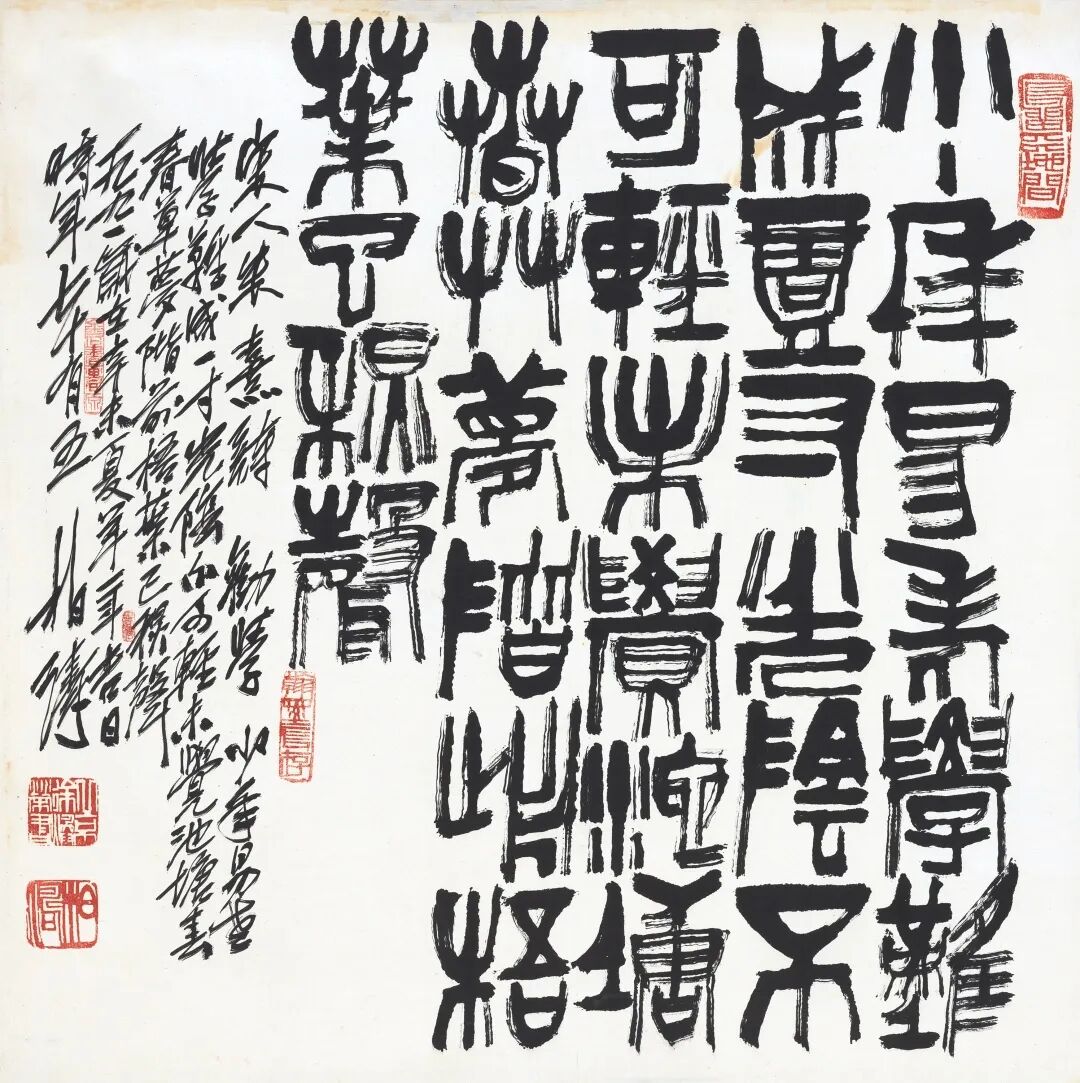 少年易老學難
成壹寸光陰不
可輕未覺池塘
春草夢階前梧
葉已秋聲
宋人朱熹詩 勸學 少年易老
學難成一寸光陰不可輕未覺池塘
春草夢階前梧葉已秋聲
一九九一歲在辛未夏年吉日
時年七十有五 柏濤